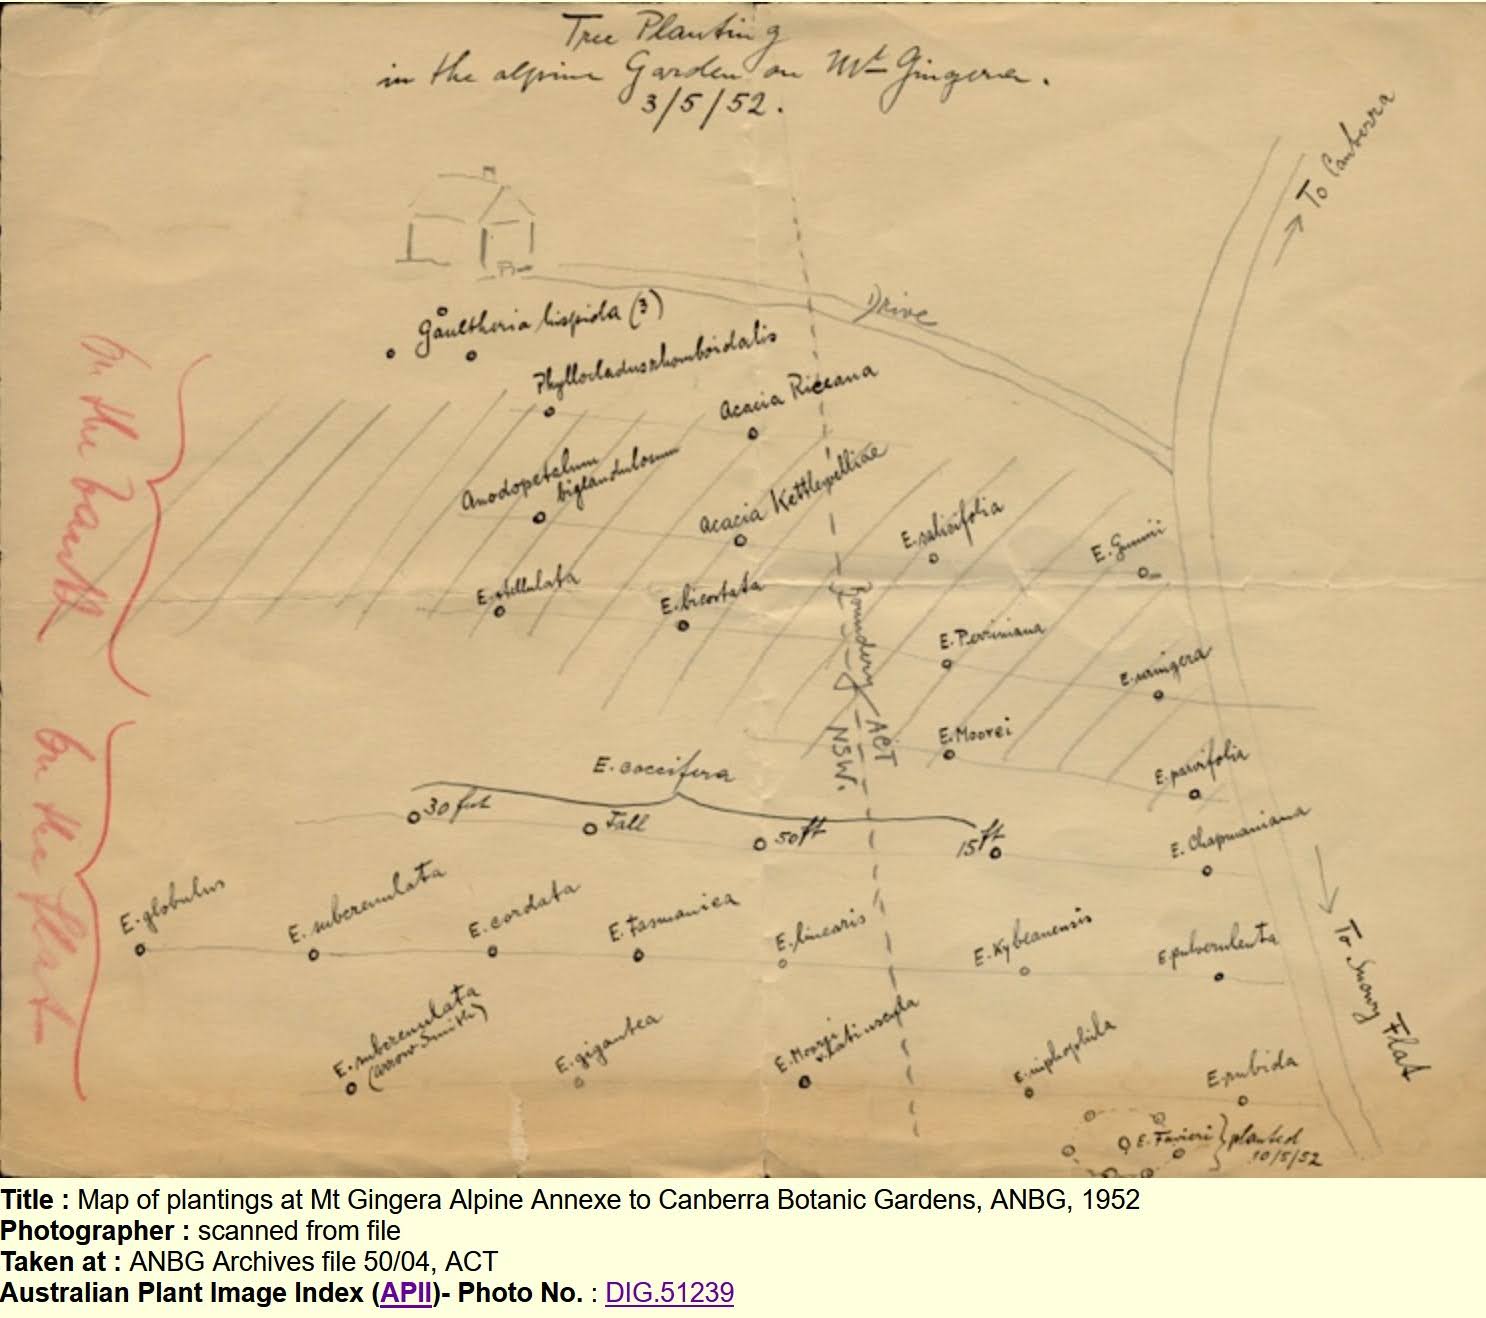 Tree Planting
in the alpine Garden on Mt Gingera.
3/5/52.
To Canberra
Drive
Gaultheria hispida (3)
Phyllocladus rhomboidalis
Acacia Riceana
On the bank
Anodopetalum
biglandulosum
Acacia Kettlewelliae
E. salicifolia
E. Gunnii
E. stellulata
E. bicostata
Boundery
E. Perriniana
E. urnigera
ACT
NSW.
E. Moorei
E. parvifolia
On the flat
E. coccifera
30 feet
Tall
50 ft
15 ft
E. Chapmaniana
E. globulus
E. subcrenulata
E. cordata
E. Tasmanica
E. linearis
E. Kybeanensis
E. pulverulenta
To Snowy Flat
E. subcrenulata
(Arrow Smith)
E. gigantea
E. Moorei
v. latiuscula
E. niphophila
E. rubida
planted
10/5/52
Title : Map of plantings at Mt Gingera Alpine Annexe to Canberra Botanic Gardens, ANBG, 1952
Photographer : scanned from file
Taken at : ANBG Archives file 50/04, ACT
Australian Plant Image Index (APII)- Photo No. : DIG.51239